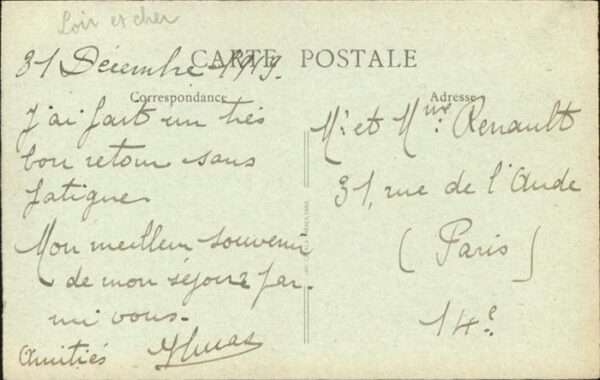 Loir et cher
CARTE POSTALE
31 Décembre 1919.
Correspondance
Adresse
J'ai fait un très
bon retour sans
fatigue.
Mon meilleur souvenir
de mon séjour par-
mi vous.
Amitiés
Mr et Mme Renault
31, rue de l'Aude
(Paris)
14e